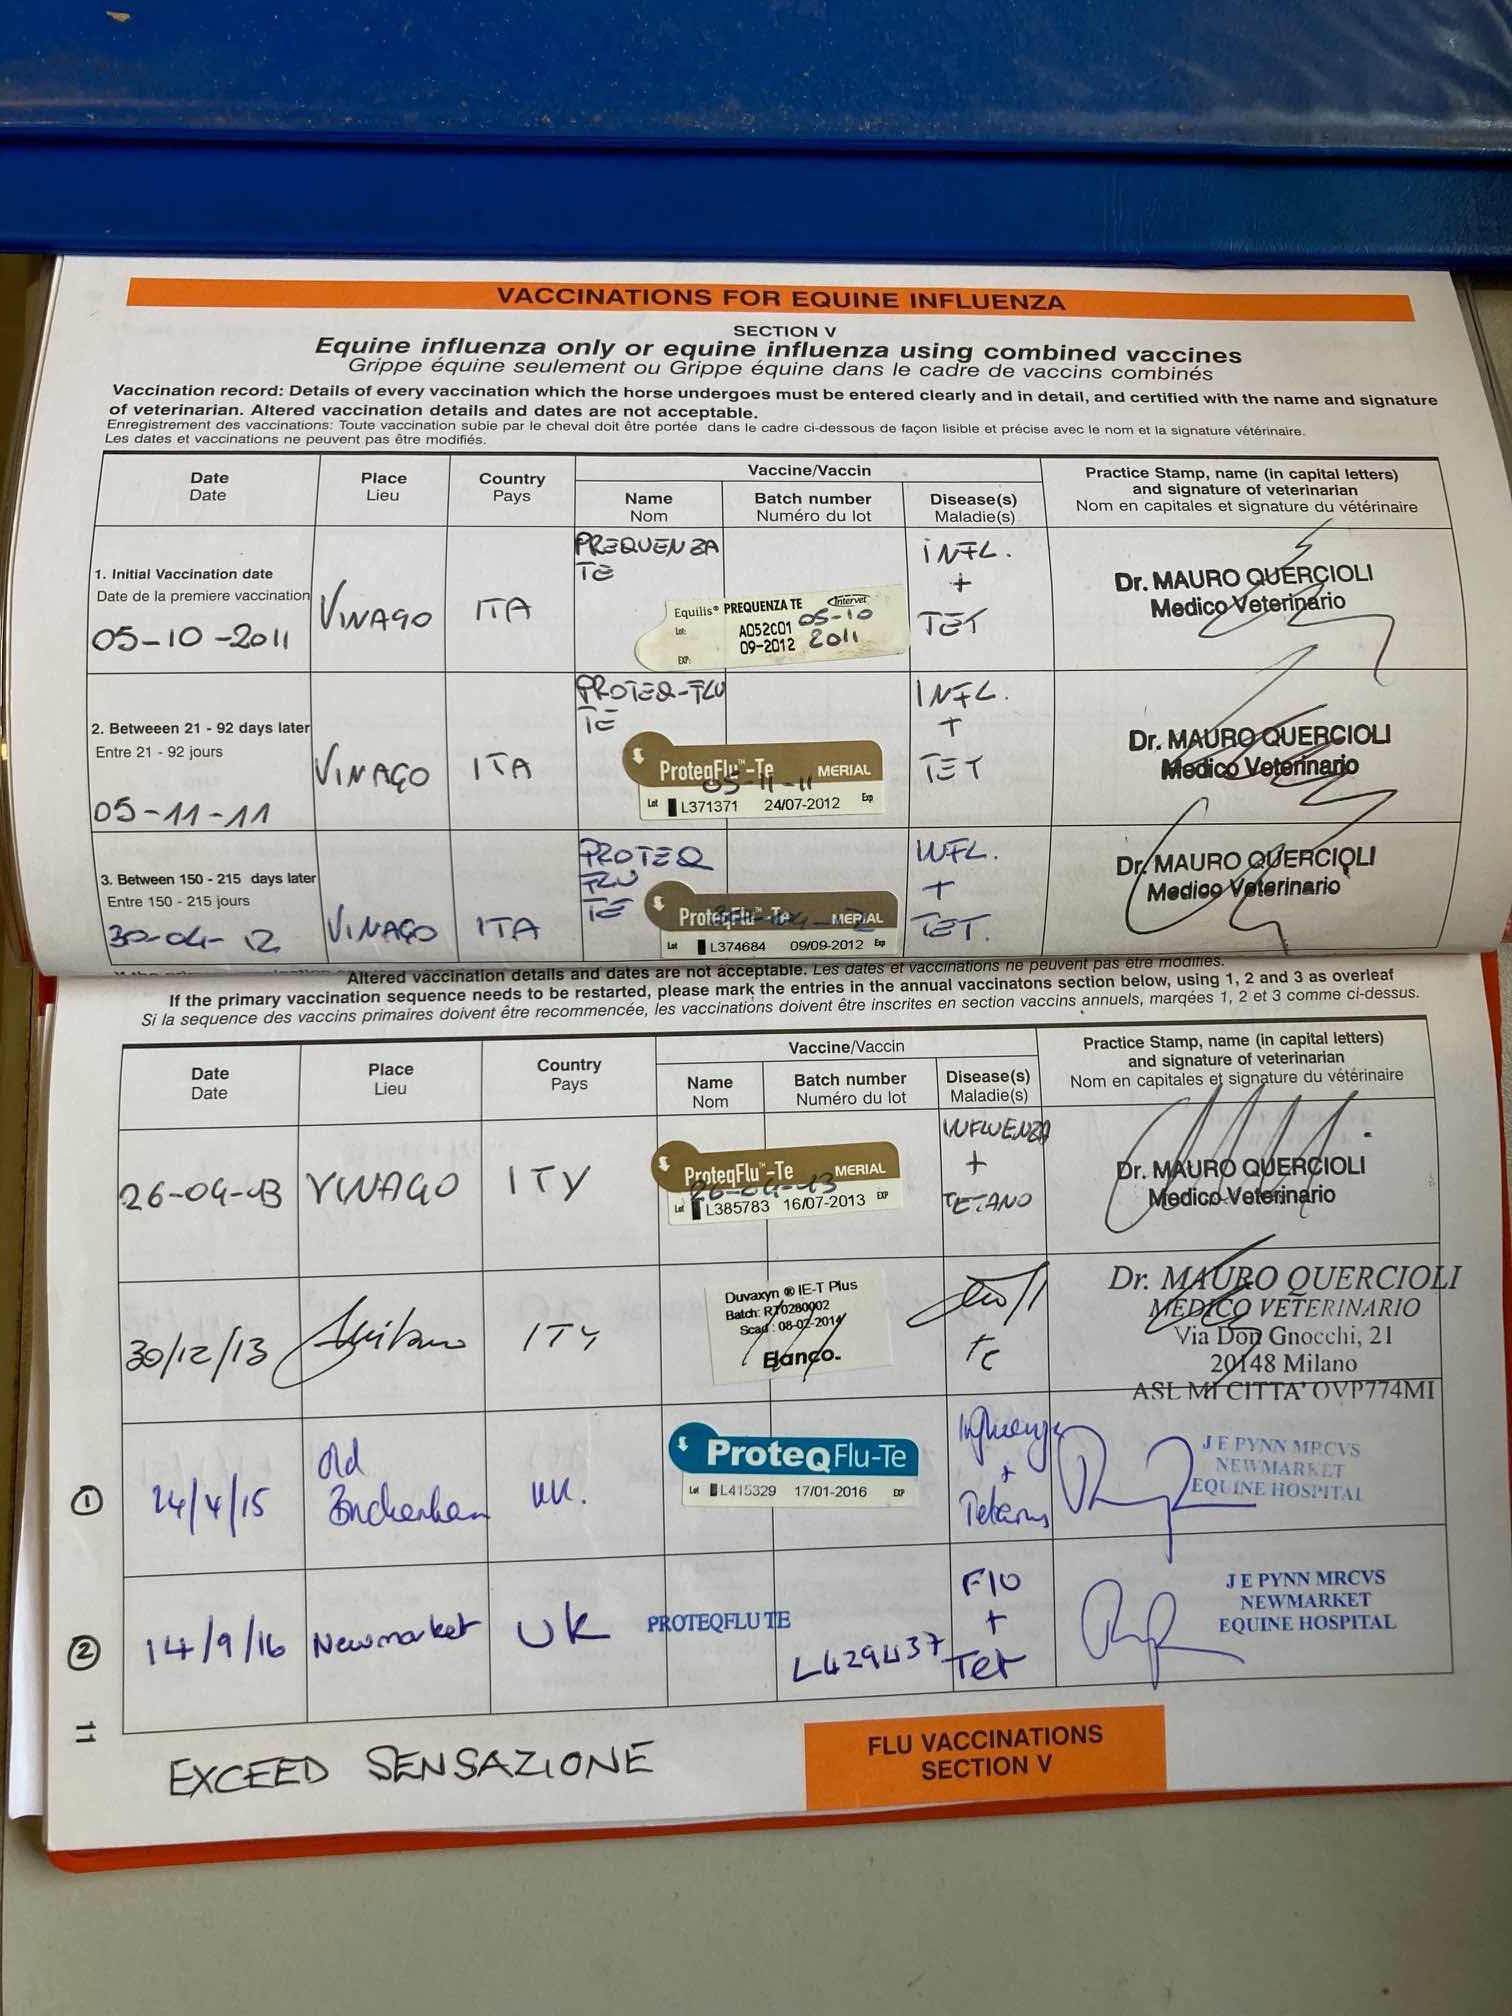 VACCINATIONS FOR EQUINE INFLUENZA
SECTION V
Equine influenza only or equine influenza using combined vaccines
Grippe équine seulement ou Grippe équine dans le cadre de vaccins combinés
Vaccination record: Details of every vaccination which the horse undergoes must be entered clearly and in detail, and certified with the name and signature
of veterinarian. Altered vaccination details and dates are not acceptable.
Enregistrement des vaccinations: Toute vaccination subie par le cheval doit être portée dans le cadre ci-dessous de façon lisible et précise avec le nom et la signature vétérinaire.
Les dates et vaccinations ne peuvent pas être modifiés.
Date
Date
Place
Lieu
Country
Pays
Vaccine/Vaccin
Name
Nom
Batch number
Numéro du lot
Disease(s)
Maladie(s)
Practice Stamp, name (in capital letters)
and signature of veterinarian
Nom en capitales et signature du vétérinaire
1. Initial Vaccination date
Date de la premiere vaccination
05-10-2011
VINAGO
ITA
PREQUENZA
TE
Equilis® PREQUENZA TE Intervet
Lot: A052C01 05-10
EXP: 09-2012 2011
INFL.
+
TET
Dr. MAURO QUERCIOLI
Medico Veterinario
2. Betweeen 21 - 92 days later
Entre 21 - 92 jours
05-11-11
VINAGO
ITA
PROTEQ-FLU
TE
ProteqFlu™-Te MERIAL
05-11-11
Lot L371371 24/07-2012 Exp
INFL.
+
TET
Dr. MAURO QUERCIOLI
Medico Veterinario
3. Between 150 - 215 days later
Entre 150 - 215 jours
30-04-12
VINAGO
ITA
PROTEQ
FLU
TE
ProteqFlu™-Te MERIAL
30-04-12
Lot L374684 09/09-2012 Exp
INFL.
+
TET.
Dr. MAURO QUERCIOLI
Medico Veterinario
Altered vaccination details and dates are not acceptable. Les dates et vaccinations ne peuvent pas être modifiés.
If the primary vaccination sequence needs to be restarted, please mark the entries in the annual vaccinatons section below, using 1, 2 and 3 as overleaf
Si la sequence des vaccins primaires doivent être recommencée, les vaccinations doivent être inscrites en section vaccins annuels, marqées 1, 2 et 3 comme ci-dessus.
Date
Date
Place
Lieu
Country
Pays
Vaccine/Vaccin
Name
Nom
Batch number
Numéro du lot
Disease(s)
Maladie(s)
Practice Stamp, name (in capital letters)
and signature of veterinarian
Nom en capitales et signature du vétérinaire
26-04-13
VINAGO
ITY
ProteqFlu™-Te MERIAL
26-04-13
Lot L385783 16/07-2013 EXP
INFLUENZA
+
TETANO
Dr. MAURO QUERCIOLI
Medico Veterinario
30/12/13
ITY
Duvaxyn ® IE-T Plus
Batch: RT0280002
Scad : 08-02-2014
Elanco.
Te
Dr. MAURO QUERCIOLI
MEDICO VETERINARIO
Via Don Gnocchi, 21
20148 Milano
ASL MI CITTA' OVP774MI
1
24/4/15
Old
UK.
ProteqFlu-Te
Lot L415329 17/01-2016 EXP
Influenza
+
Tetanus
J E PYNN MRCVS
NEWMARKET
EQUINE HOSPITAL
2
14/9/16
Newmarket
UK
PROTEQFLU TE
L429437
Flu
+
Tet
J E PYNN MRCVS
NEWMARKET
EQUINE HOSPITAL
11
EXCEED SENSAZIONE
FLU VACCINATIONS
SECTION V